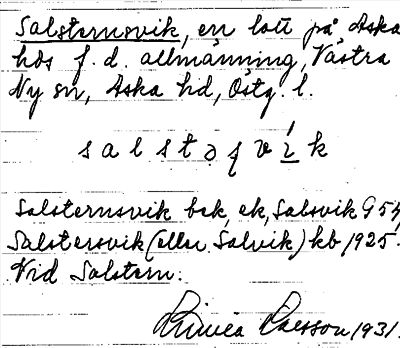 Salsternsvik, en lott på Aska
hds f.d. allmänning, Västra
Ny sn, Aska hd, Östg. l.
salstəʂvík
Salsternsvik bek, ek, Salsvik G 54,
Salstersvik (eller Salvik) kb 1925.
Vid Salstern.
Linnea Olausson 1931.